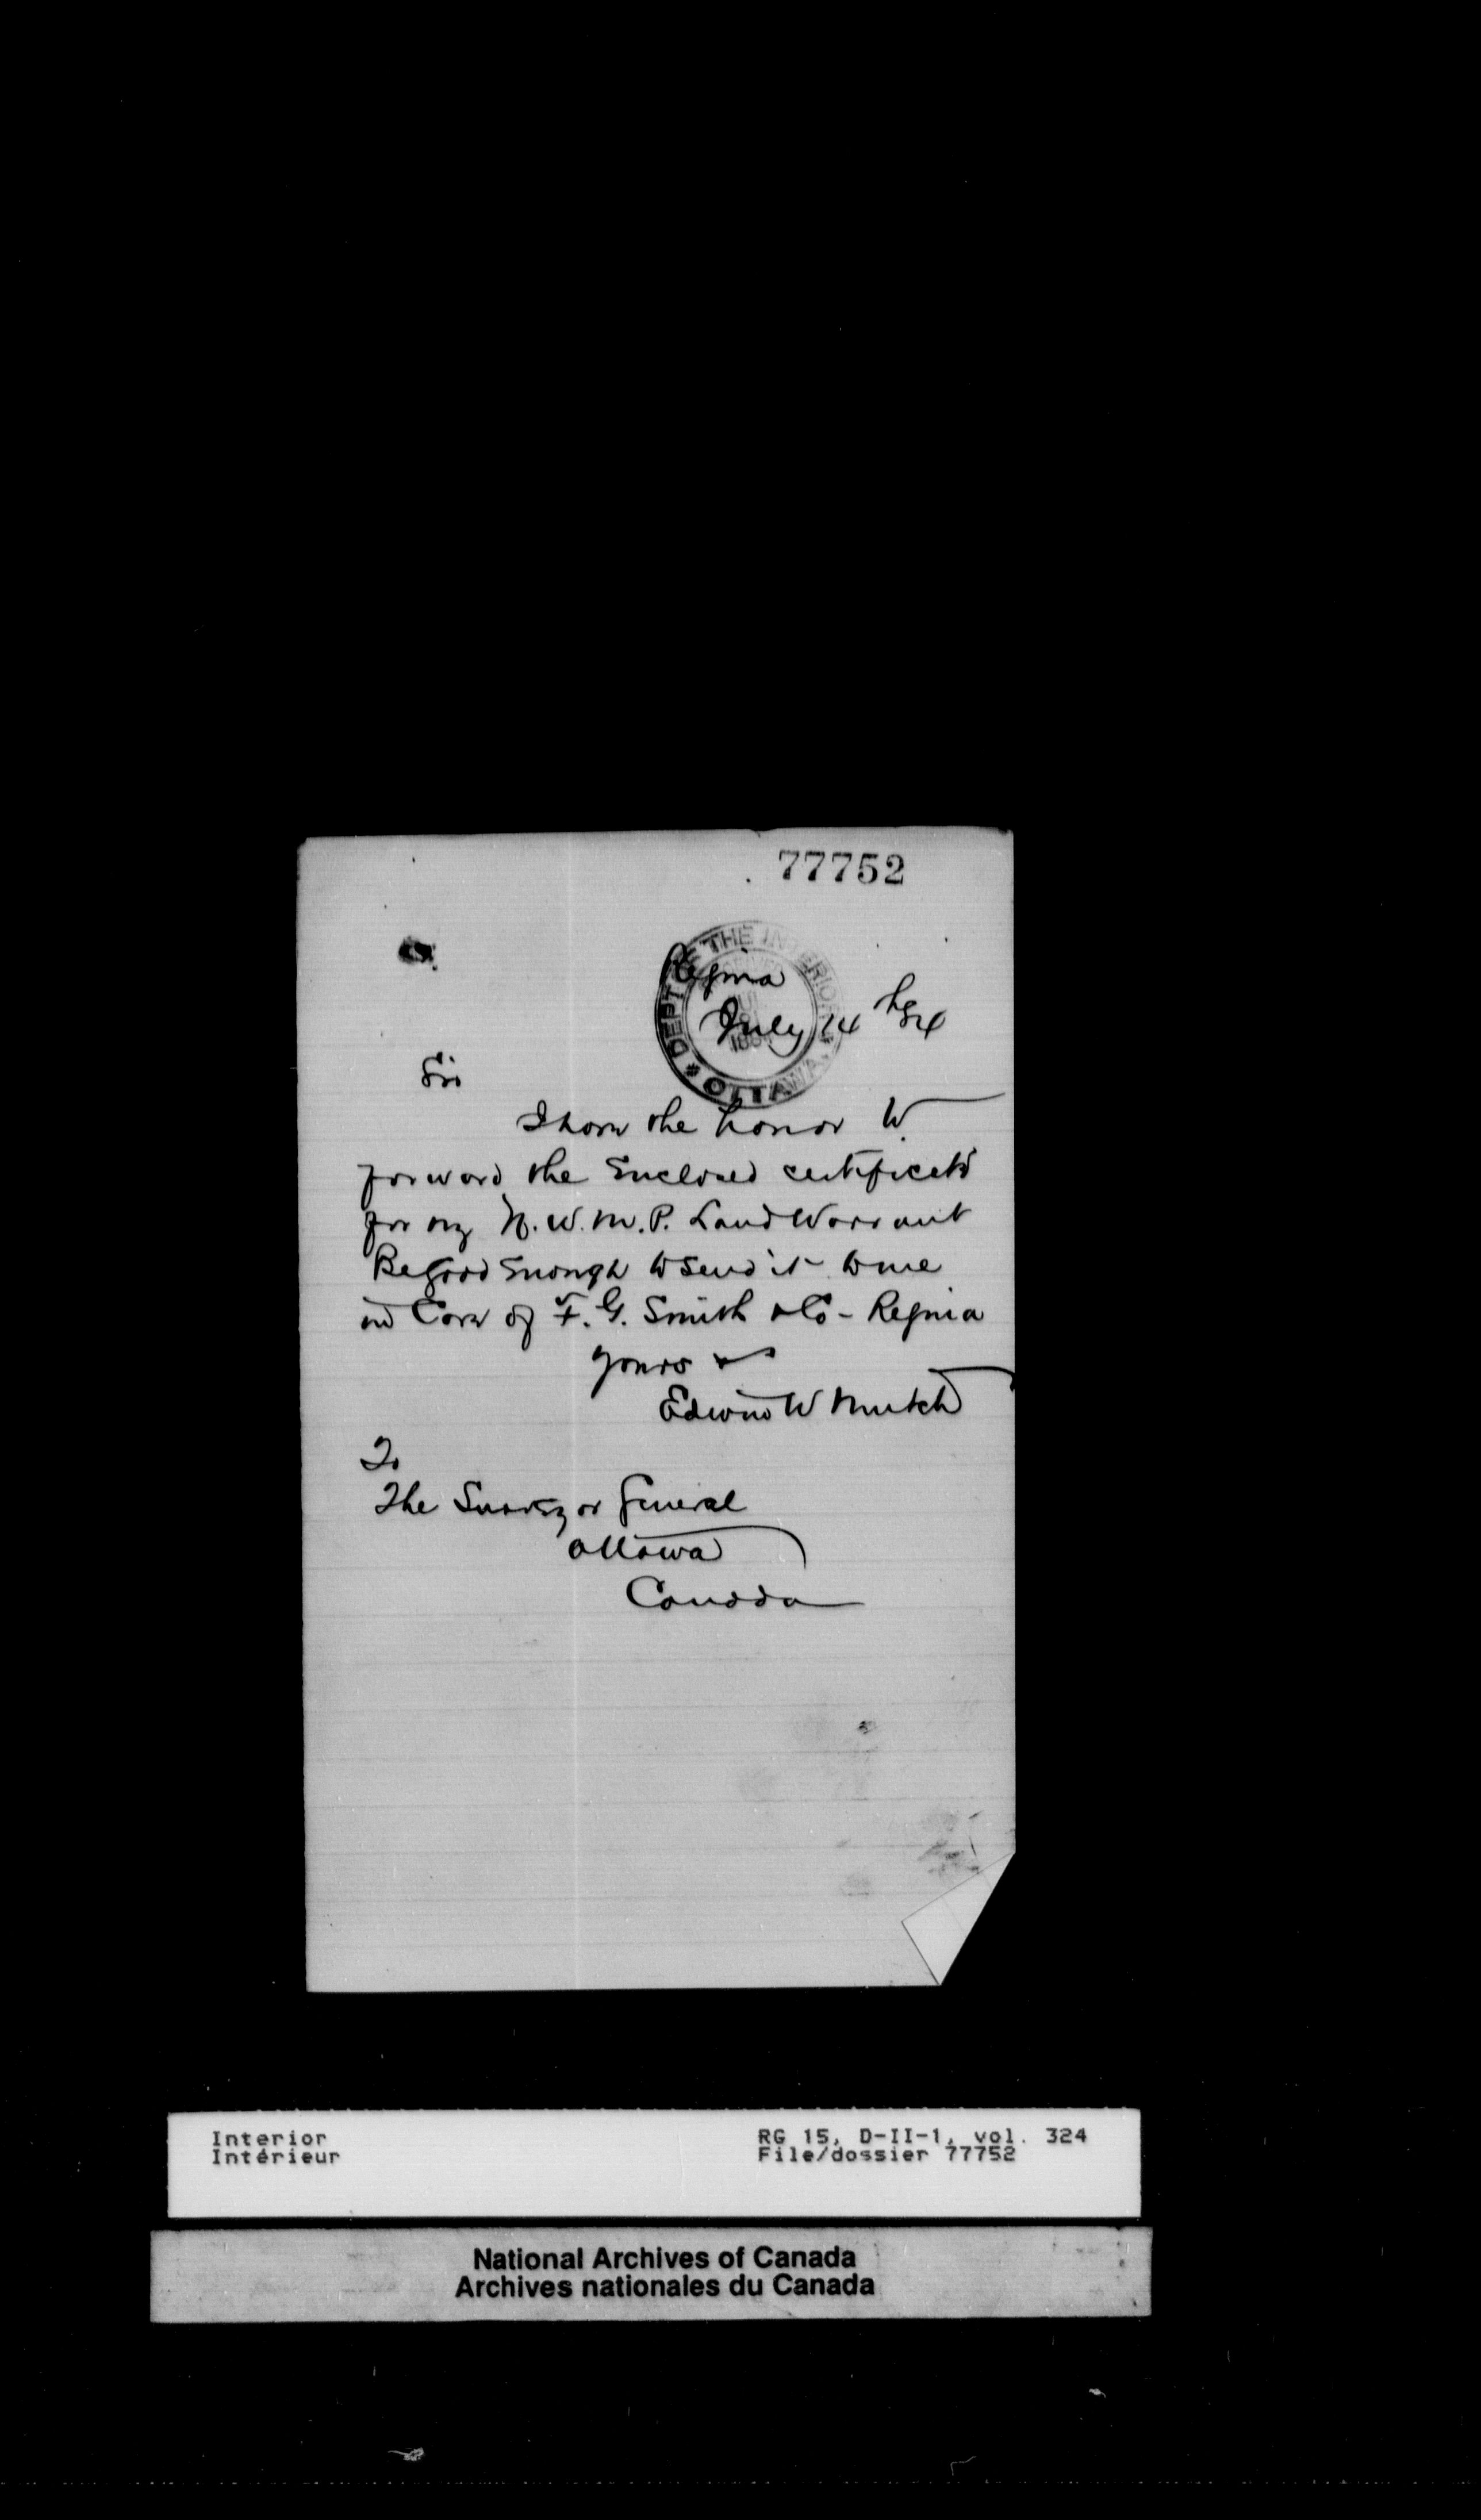 77752
DEPT OF THE INTERIOR
OTTAWA
Regina
July 14th 84
Sir
I have the honor to
forward the Enclosed certificate
for my N.W.M.P. Land Warrant
Be good Enough to send it to me
in Care of F. G. Smith & Co - Regina
yours &c
Edwin W Mutch
To
The Surveyor General
Ottawa
Canada
Interior
Intérieur
RG 15, D-II-1, vol. 324
File/dossier 77752
National Archives of Canada
Archives nationales du Canada